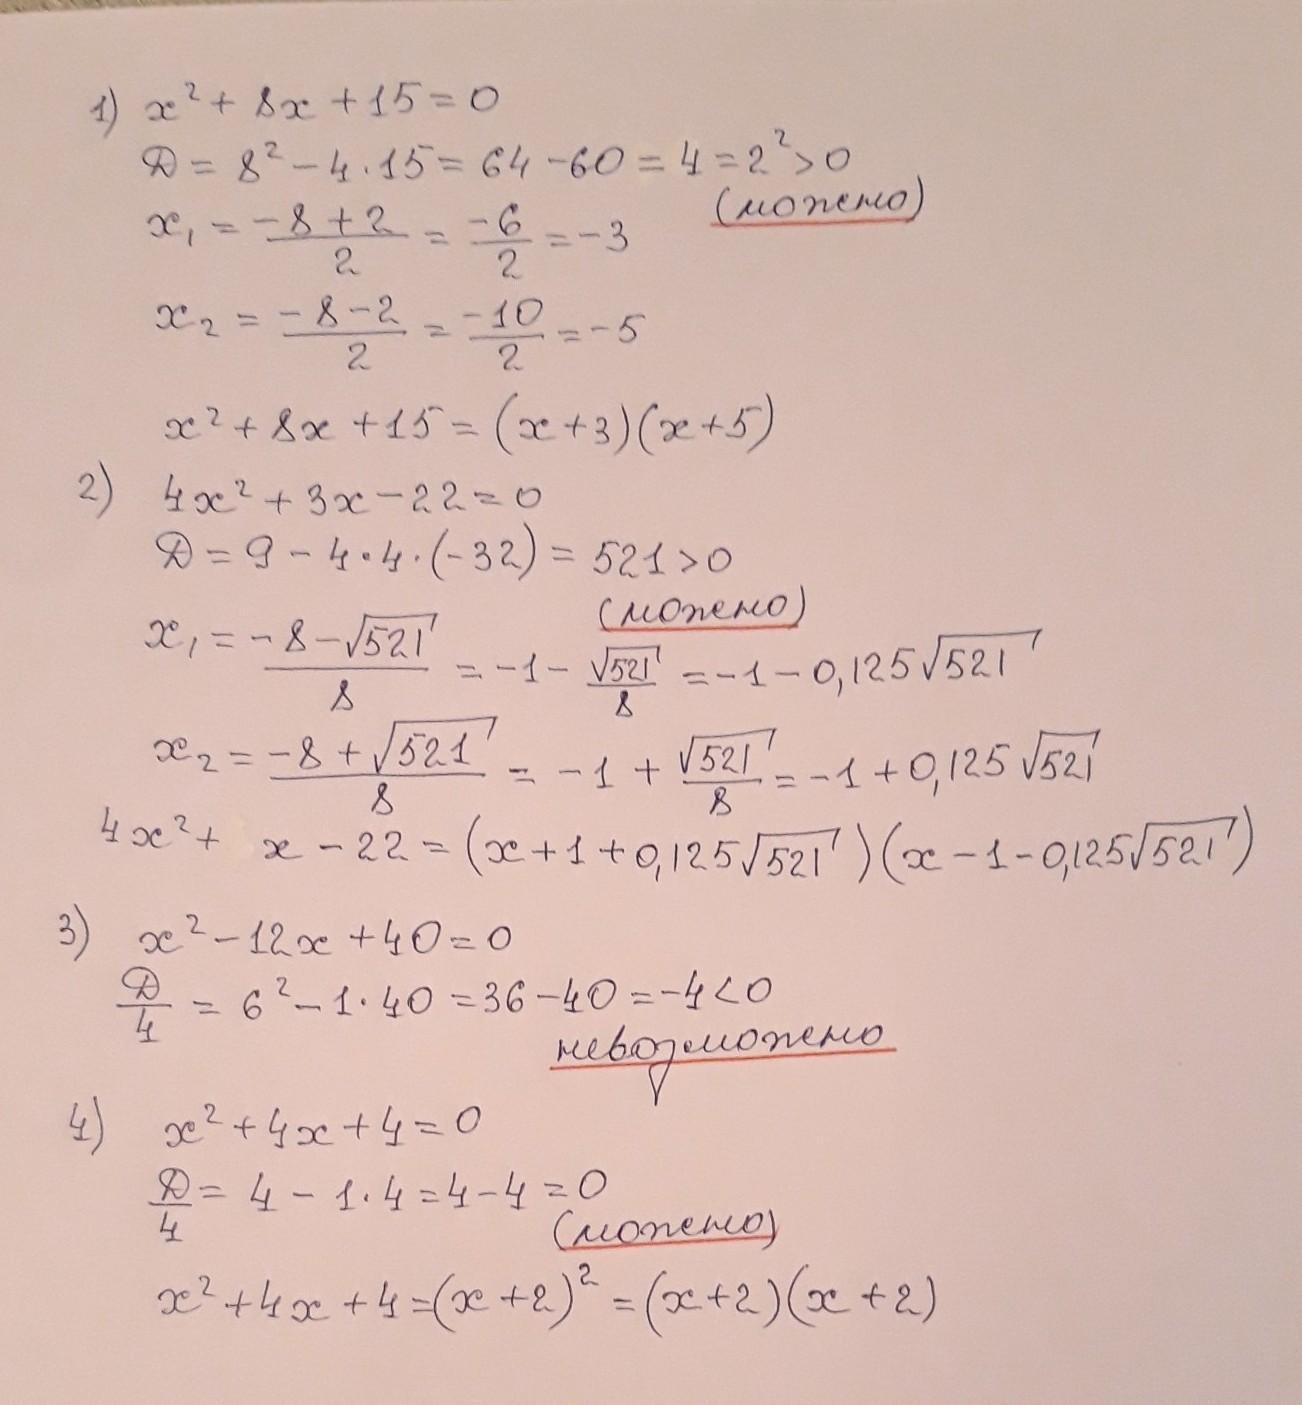 1) x² + 8x + 15 = 0
D = 8² - 4 · 15 = 64 - 60 = 4 = 2² > 0
(можено)
x₁ = (-8 + 2)/2 = -6/2 = -3
x₂ = (-8 - 2)/2 = -10/2 = -5
x² + 8x + 15 = (x + 3)(x + 5)
2) 4x² + 3x - 22 = 0
D = 9 - 4 · 4 · (-32) = 521 > 0
(можено)
x₁ = (-8 - √521)/8 = -1 - √521/8 = -1 - 0,125√521
x₂ = (-8 + √521)/8 = -1 + √521/8 = -1 + 0,125√521
4x² + x - 22 = (x + 1 + 0,125√521)(x - 1 - 0,125√521)
3) x² - 12x + 40 = 0
D/4 = 6² - 1 · 40 = 36 - 40 = -4 < 0
невозможено
4) x² + 4x + 4 = 0
D/4 = 4 - 1 · 4 = 4 - 4 = 0
(можено)
x² + 4x + 4 = (x + 2)² = (x + 2)(x + 2)